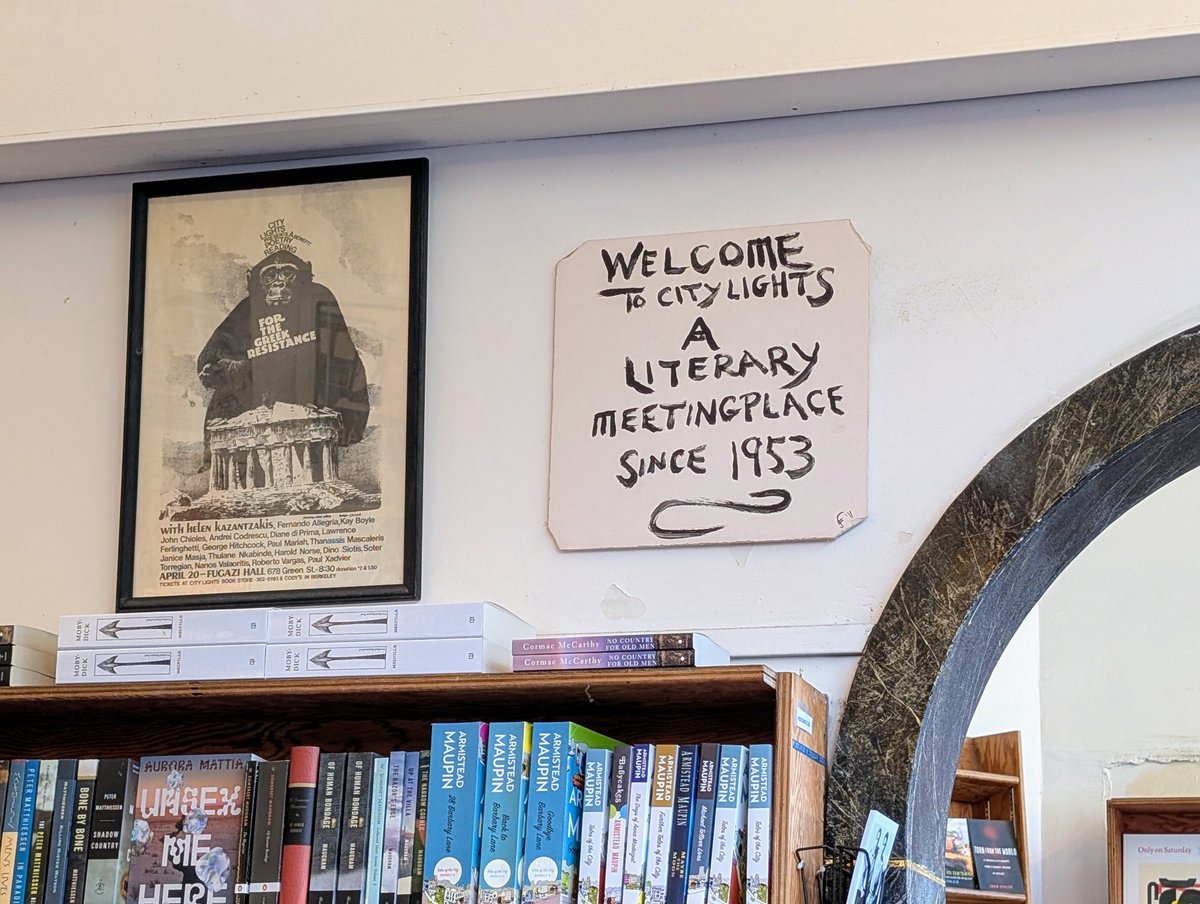 CITY
LIGHTS
PRESENTS A BENEFIT
POETRY
READING
FOR
THE
GREEK
RESISTANCE
with HELEN KAZANTZAKIS, Fernando Allegria, Kay Boyle
John Chioles, Andrei Codrescu, Diane di Prima, Lawrence
Ferlinghetti, George Hitchcock, Paul Mariah, Thanassis Mascaleris
Janice Masja, Thulane Nkabinde, Harold Norse, Dino Siotis, Soter
Torregian, Nanos Valaoritis, Roberto Vargas, Paul Xadvier
APRIL 20–FUGAZI HALL 678 Green St.-8:30 donation $2 & 1.50
TICKETS AT CITY LIGHTS BOOK STORE-362-8193 & CODY'S IN BERKELEY
WELCOME
TO CITY LIGHTS
A
LITERARY
MEETINGPLACE
SINCE 1953
MOBY-DICK MELVILLE
MOBY-DICK MELVILLE
MOBY-DICK MELVILLE
MOBY-DICK MELVILLE
Cormac McCarthy NO COUNTRY FOR OLD MEN
Cormac McCarthy NO COUNTRY FOR OLD MEN
MEN'S LIVES
PETER MATTHIESSEN IN PARADISE
BONE BY BONE
PETER MATTHIESSEN
SHADOW COUNTRY
AURORA MATTIA
UNSEX
ME
HERE
OF HUMAN BONDAGE MAUGHAM
OF HUMAN BONDAGE MAUGHAM
THE RAZOR'S EDGE
UP AT THE VILLA
THE NARROW CORNER
ARMISTEAD MAUPIN 28 Barbary Lane
ARMISTEAD MAUPIN Back to Barbary Lane
ARMISTEAD MAUPIN Goodbye Barbary Lane
ARMISTEAD MAUPIN Tales of the City
Babycakes ARMISTEAD MAUPIN
MAUPIN The Days of Anna Madrigal
ARMISTEAD MAUPIN Further Tales of the City
ARMISTEAD MAUPIN
MAUPIN Michael Tolliver Lives
ARMISTEAD MAUPIN Tales of the City
ARMISTEAD MAUPIN Tales of the City
TORN FROM THE WORLD
Only on Saturday